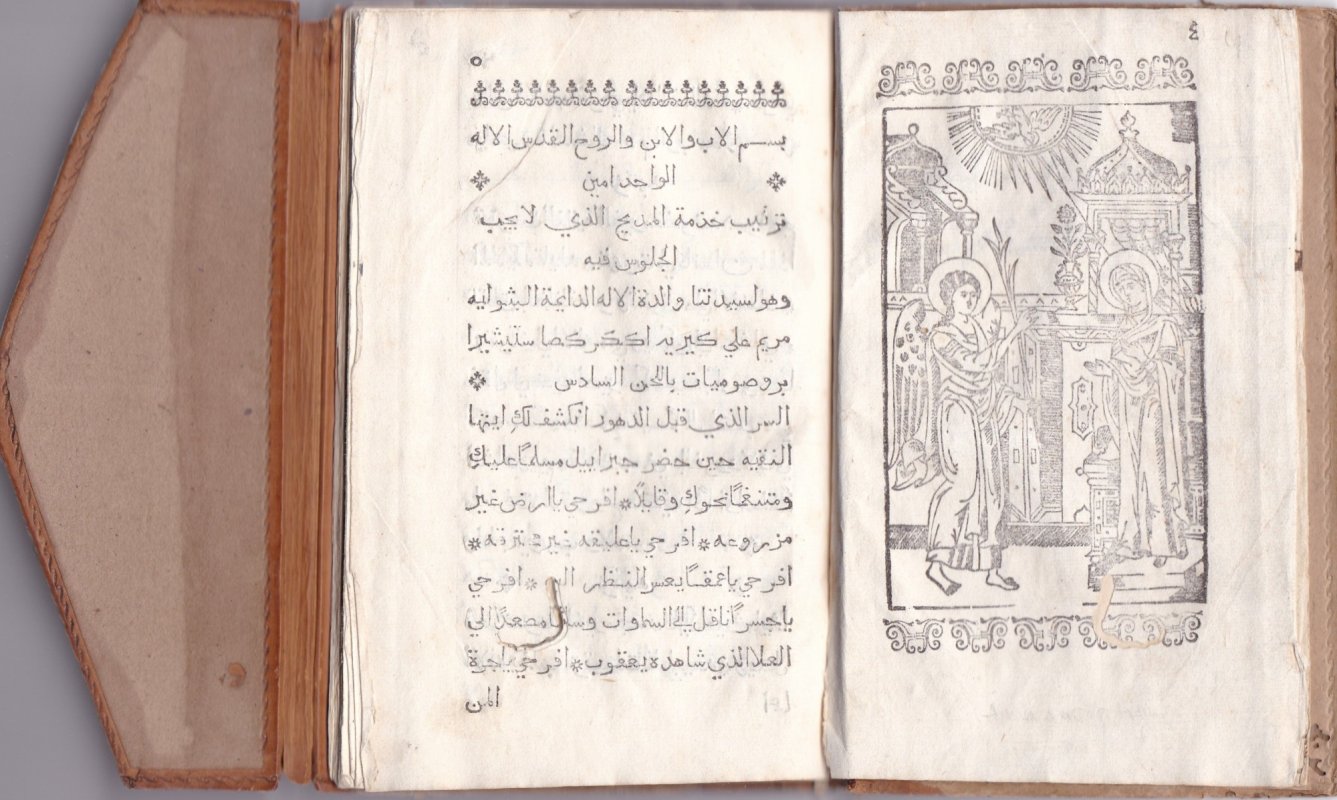 ٤
٥
بسم الاب والابن والروح القدس الاله
الواحد امين
ترتيب خدمة المديح الذي لا يجب
الجلوس فيه
وهو لسيدتنا والدة الاله الدايمة البتوليه
مريم علي كيريه اككركصا ستيشيرا
بروصوميات بالحن السادس
السر الذي قبل الدهور انكشف لكِ ايتها
النقيه حين حضر جبراييل مسلمًا عليكِ
ومتنغمًا نحوكِ وقايلاً * افرحي يا ارض غير
مزروعه * افرحي يا عليقه غير محترقه *
افرحي يا عمقًا يعسر النظر اليه * افرحي
يا جسرًا ناقل الي السماوات وسلمًا مصعدًا الي
العلا الذي شاهده يعقوب * افرحي يا جرة
المن